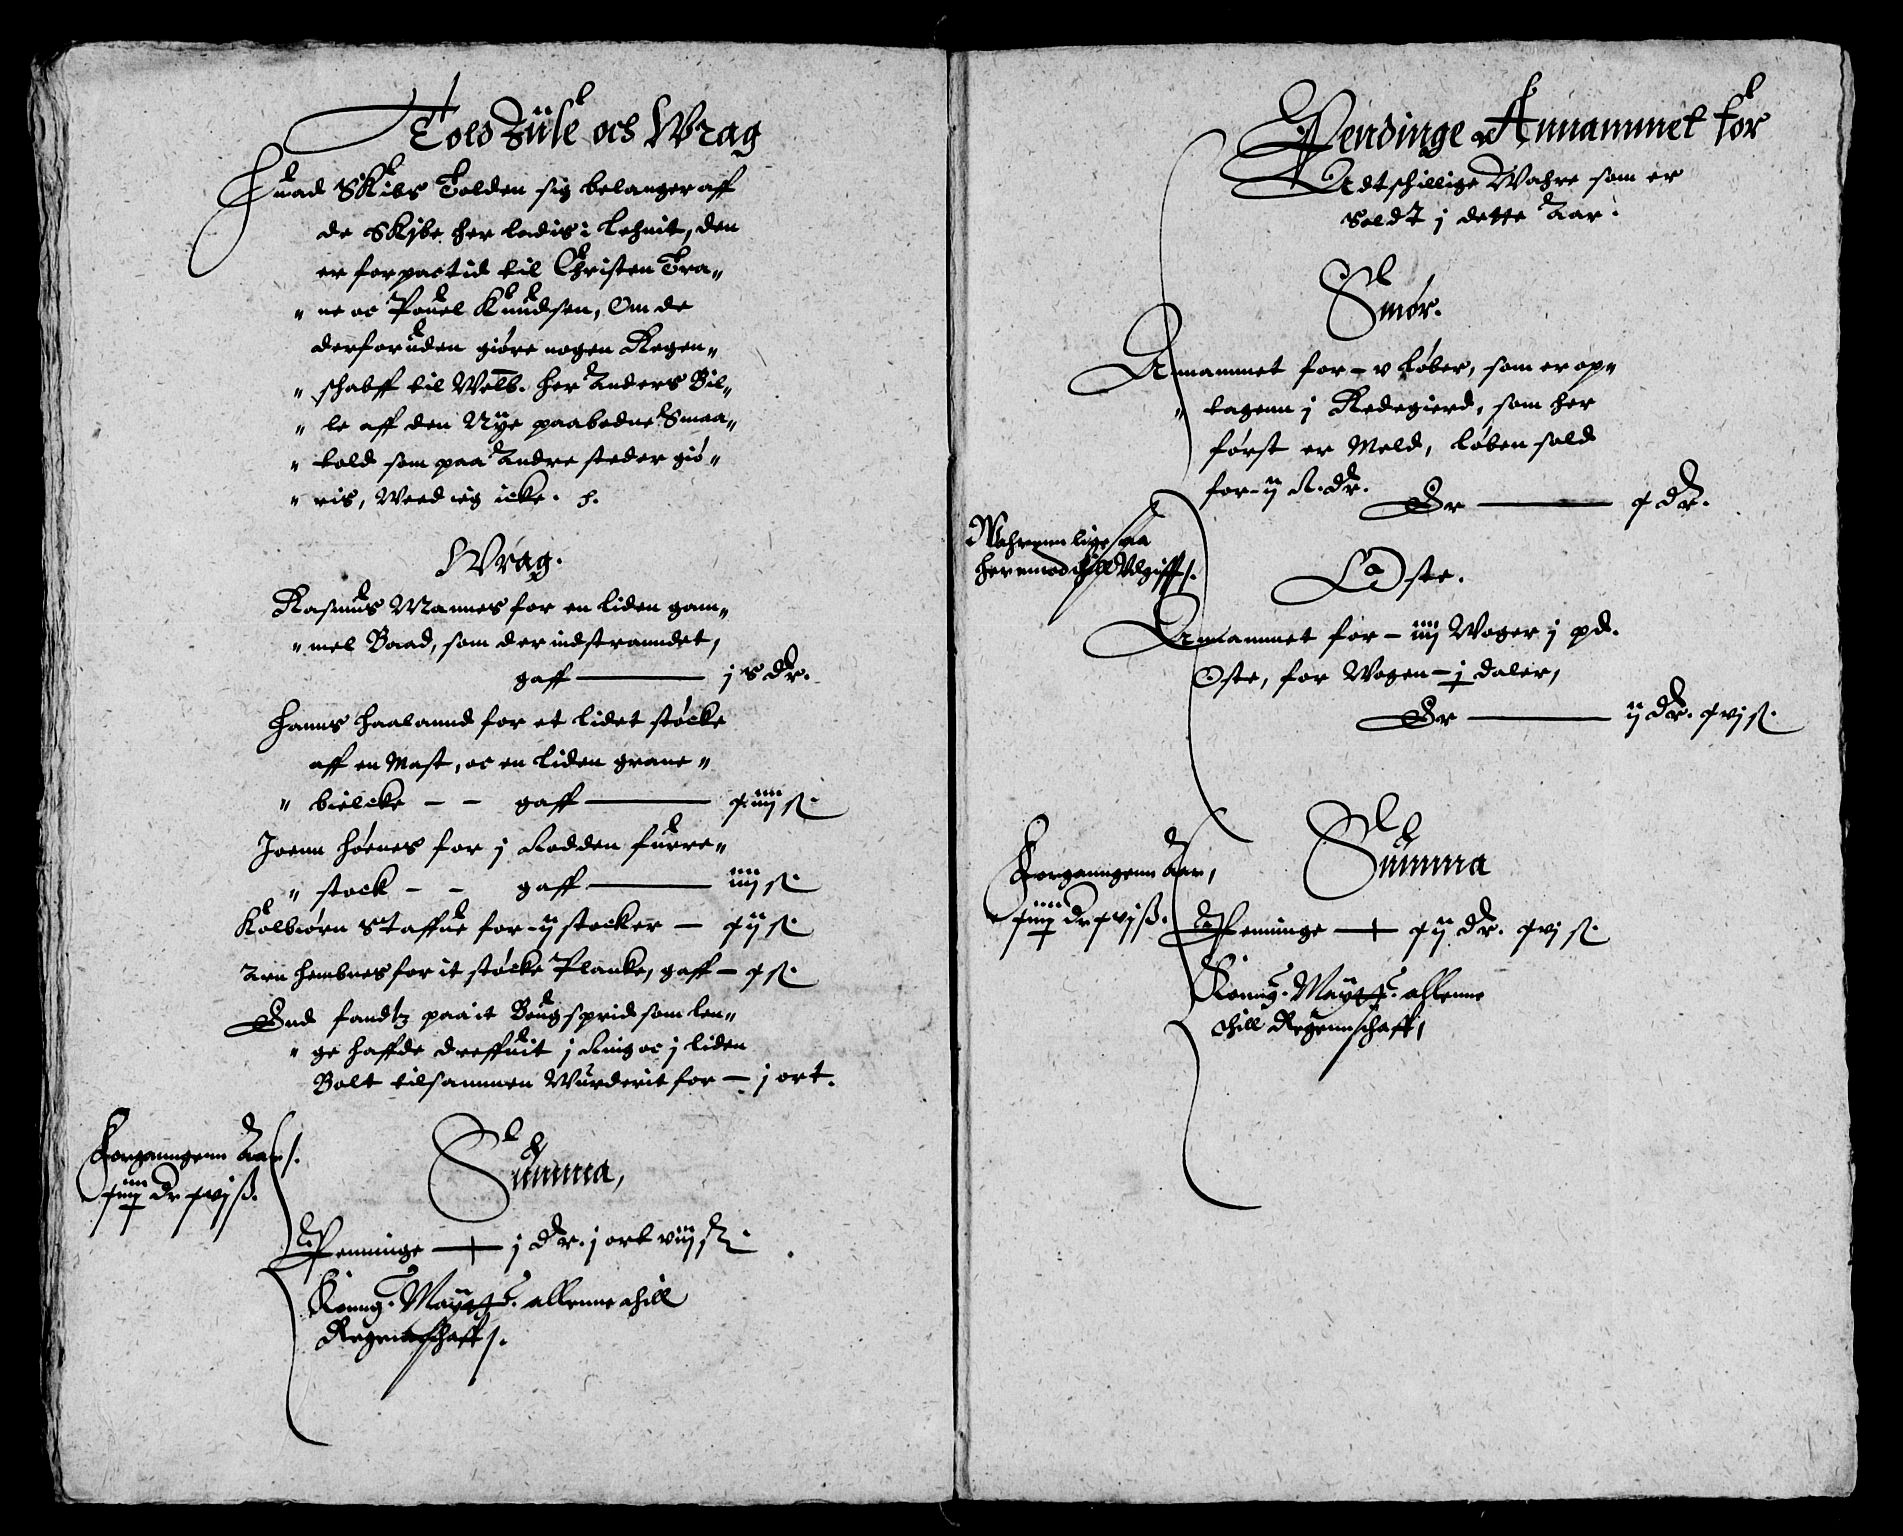 Told Züse och Wrag
Huad Skibs Tolden sig belanger aff
de Skibe her ladis i Lehnit, den
er forpactid til Christen Tra„
„ ne oc Pouel Knudsen, Om de
derforuden giøre nogen Regen„
„ schabff til Welb. her Anders Bil„
„ le aff den Nÿe paabodne Smaa„
„ told som paa Andre steder giö„
„ ris, Weed ieg icke.
Wrag.
Rasmus Mannes for en liden gam„
„ mel Baad, som der indstranndet,
gaff — j s dr.
Hanns Haaland for et lidet støcke
aff en Mast, oc en liden grane„
„ bielcke – – gaff — xiiij ß.
Joenn Høenes for j Rodden furre„
„ stock – – gaff — iiij ß.
Kolbiørn Staffue for – ij stocker — xij ß.
Arn Hembnes for it støcke Plancke, gaff – x ß.
End fandtz paa it Bougsprid som len„
„ ge haffde dreffuit j Ring oc j liden
Bolt tilsammen Wurderit for — j ort.
Forganngenn Aar/.
xiiij dr xvj ß.
Summa,
Penninge — j dr. j ort viij ß.
Konng. Maÿtts. allenne thill
Regennschaff/.
Pendinge Annammet for
Adtschillige Wahre som er
Soldt j dette Aar.
Smør.
Annammet for – v løber, som er op„
„ tagenn j Redegierd, som her
först er Meld, løben sold
for – ij R. dr. Er — x dr.
Wahrenn ligesaa
heremod thill Udgifft/.
Oste.
Annammet for – iiij Woger j pd.
Oste, for Wogen – j daler,
Er — ij dr. xvj ß.
Forganngenn Aar,
xiiij dr xvj ß.
Summa
Penninge — xij dr. xvj ß.
Konng. Maÿtts. allenne
thill Regennschaff,